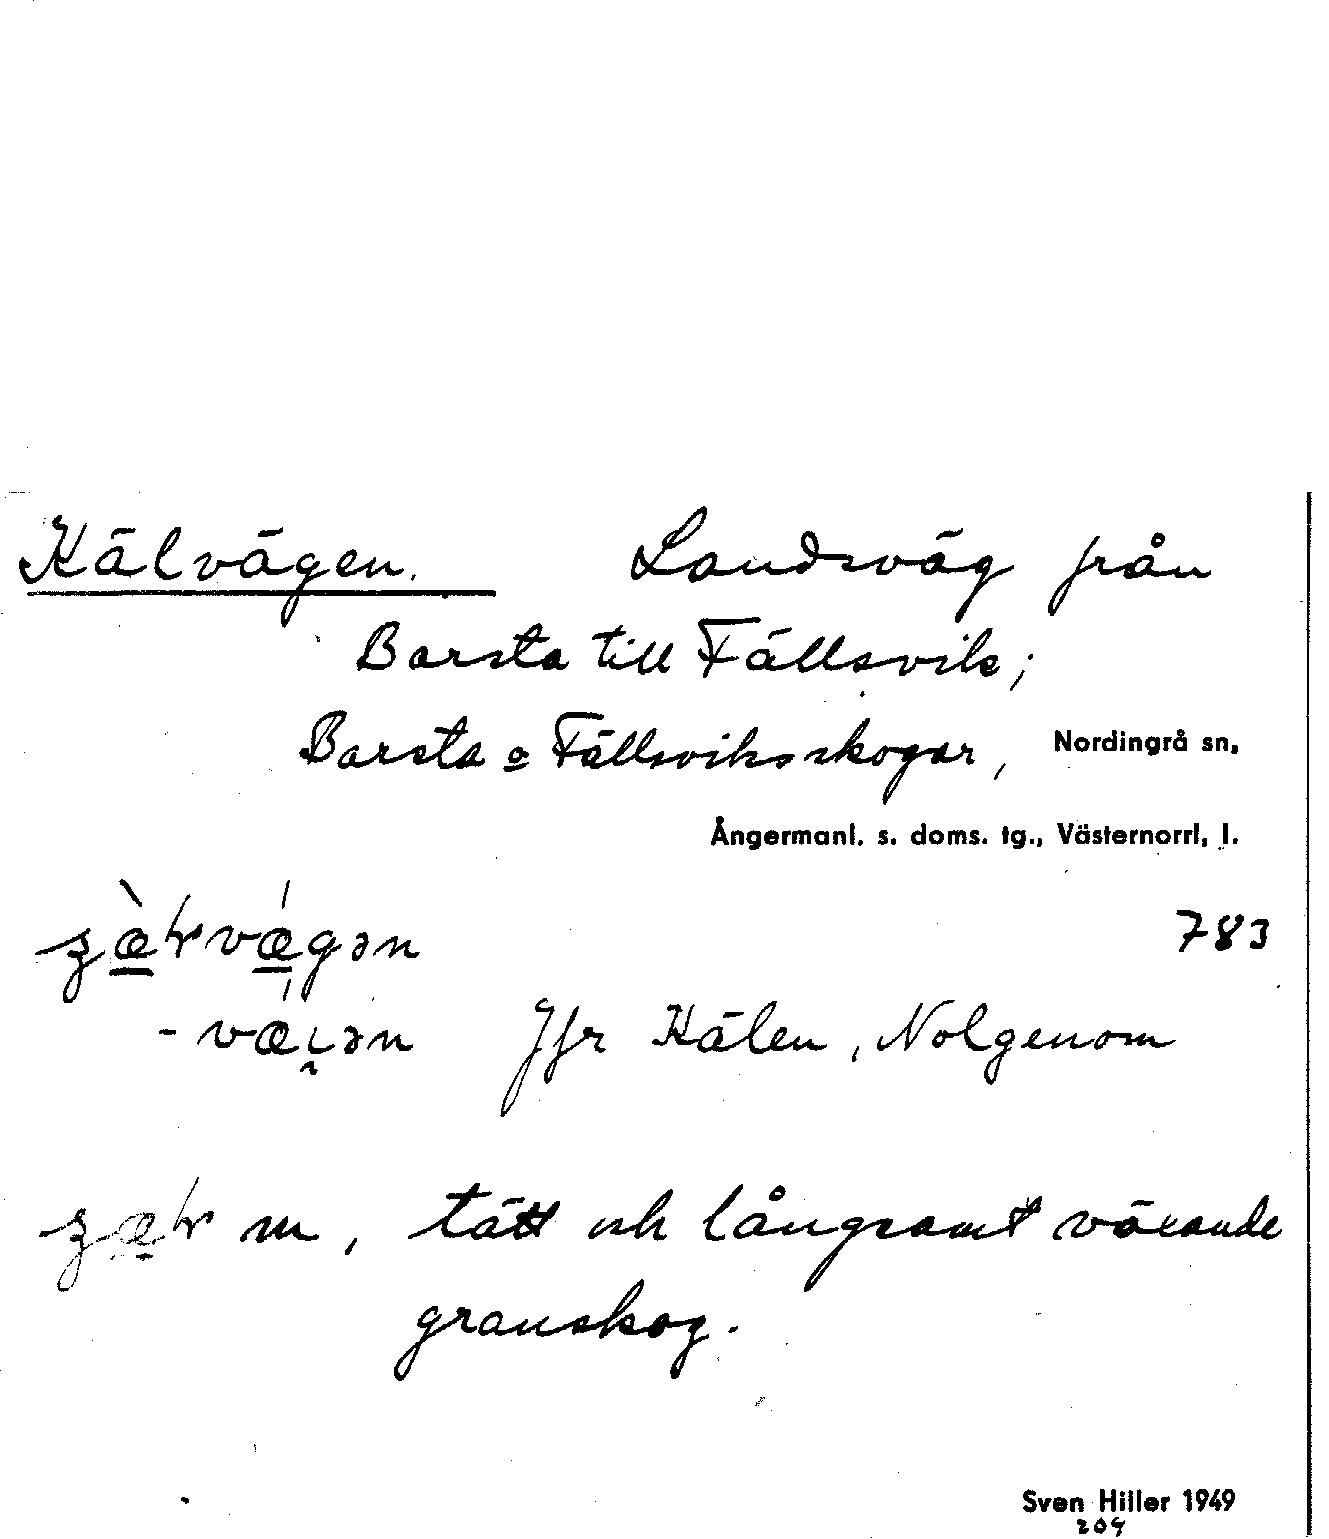 Kälvägen. Landsväg från
Barsta till Fällsvik;
Barsta o Fällsviksskogar, Nordingrå sn,
Ångermanl. s. doms. tg., Västernorrl. l.
783
Jfr Kälen, Nolgenom
m, tätt och långsamt växande
granskog.
Sven Hiller 1949
204